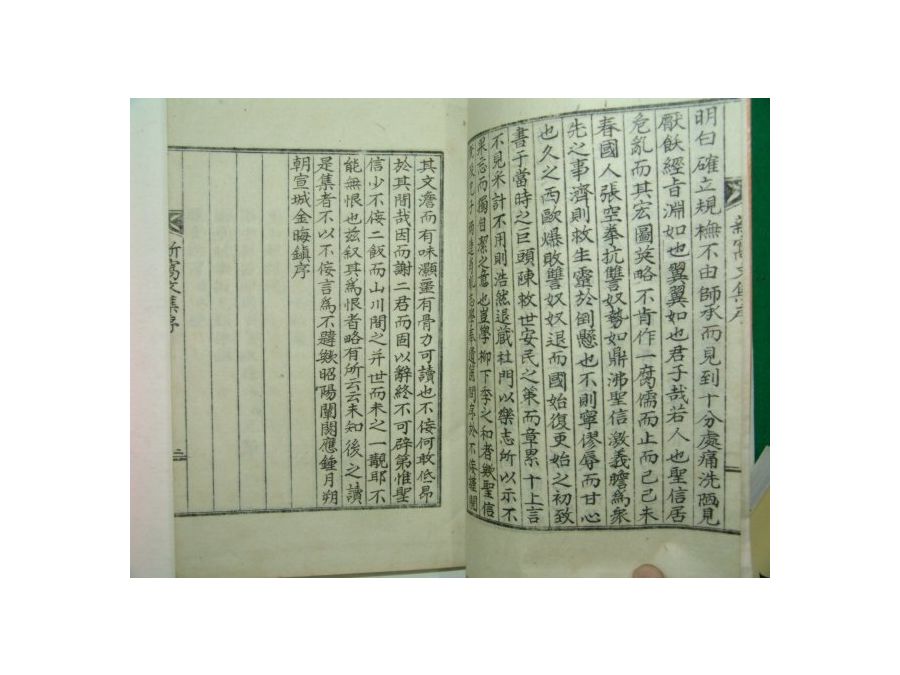 明白確立規橅不由師承而見到十分處痛洗陋見
厭飫經旨淵如也翼翼如也君子哉若人也聖信居
危亂而其宏圖英略不肯作一腐儒而止而已己未
春國人張空拳抗讐奴勢如鼎沸聖信激義膽爲衆
先之事濟則救生靈於倒懸也不則寧僇辱而甘心
也久之西歐爆敗讐奴奴退而國始復更始之初致
書于當時之巨頭陳救世安民之策而章累十上言
不見采計不用則浩然退藏杜門以樂志所以示不
果忘而獨自潔之意也豈學柳下季之和者歟聖信
其文詹而有味灝噩有骨力可讀也不佞何敢低昂
於其間哉因而謝二君而固以辭終不可辟第惟聖
信少不佞二飯而山川間之并世而未之一覯耶不
能無恨也玆叙其爲恨者略有所云云未知後之讀
是集者不以不佞言爲不韙歟昭陽闡閼應鍾月朔
朝宣城金晦鎭序
文集序
二